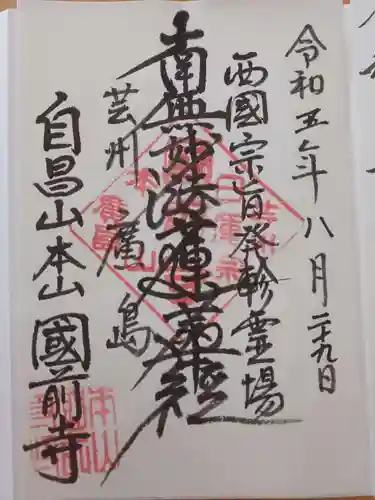 令和五年八月二十九日
西國宗旨発軫霊場
南無妙法蓮華経
芸州廣島
自昌山本山國前寺